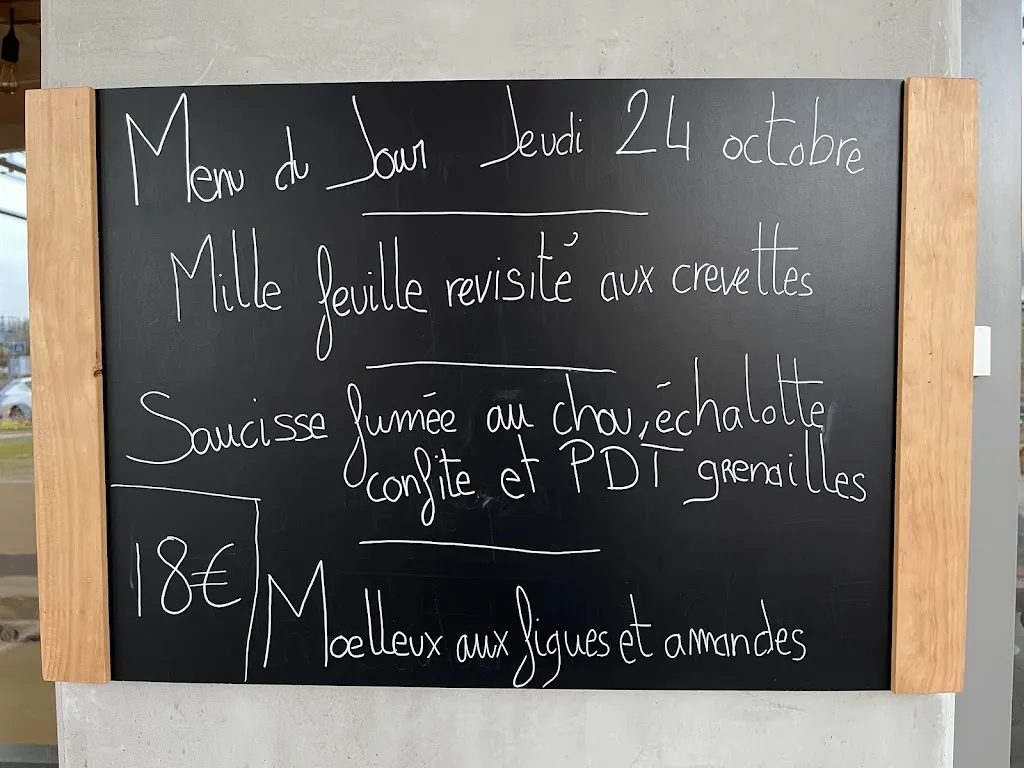 Menu du Jour Jeudi 24 octobre
Mille feuille revisité aux crevettes
Saucisse fumée au chou, échalotte
confite et PDT grenailles
18€
Moelleux aux figues et amandes